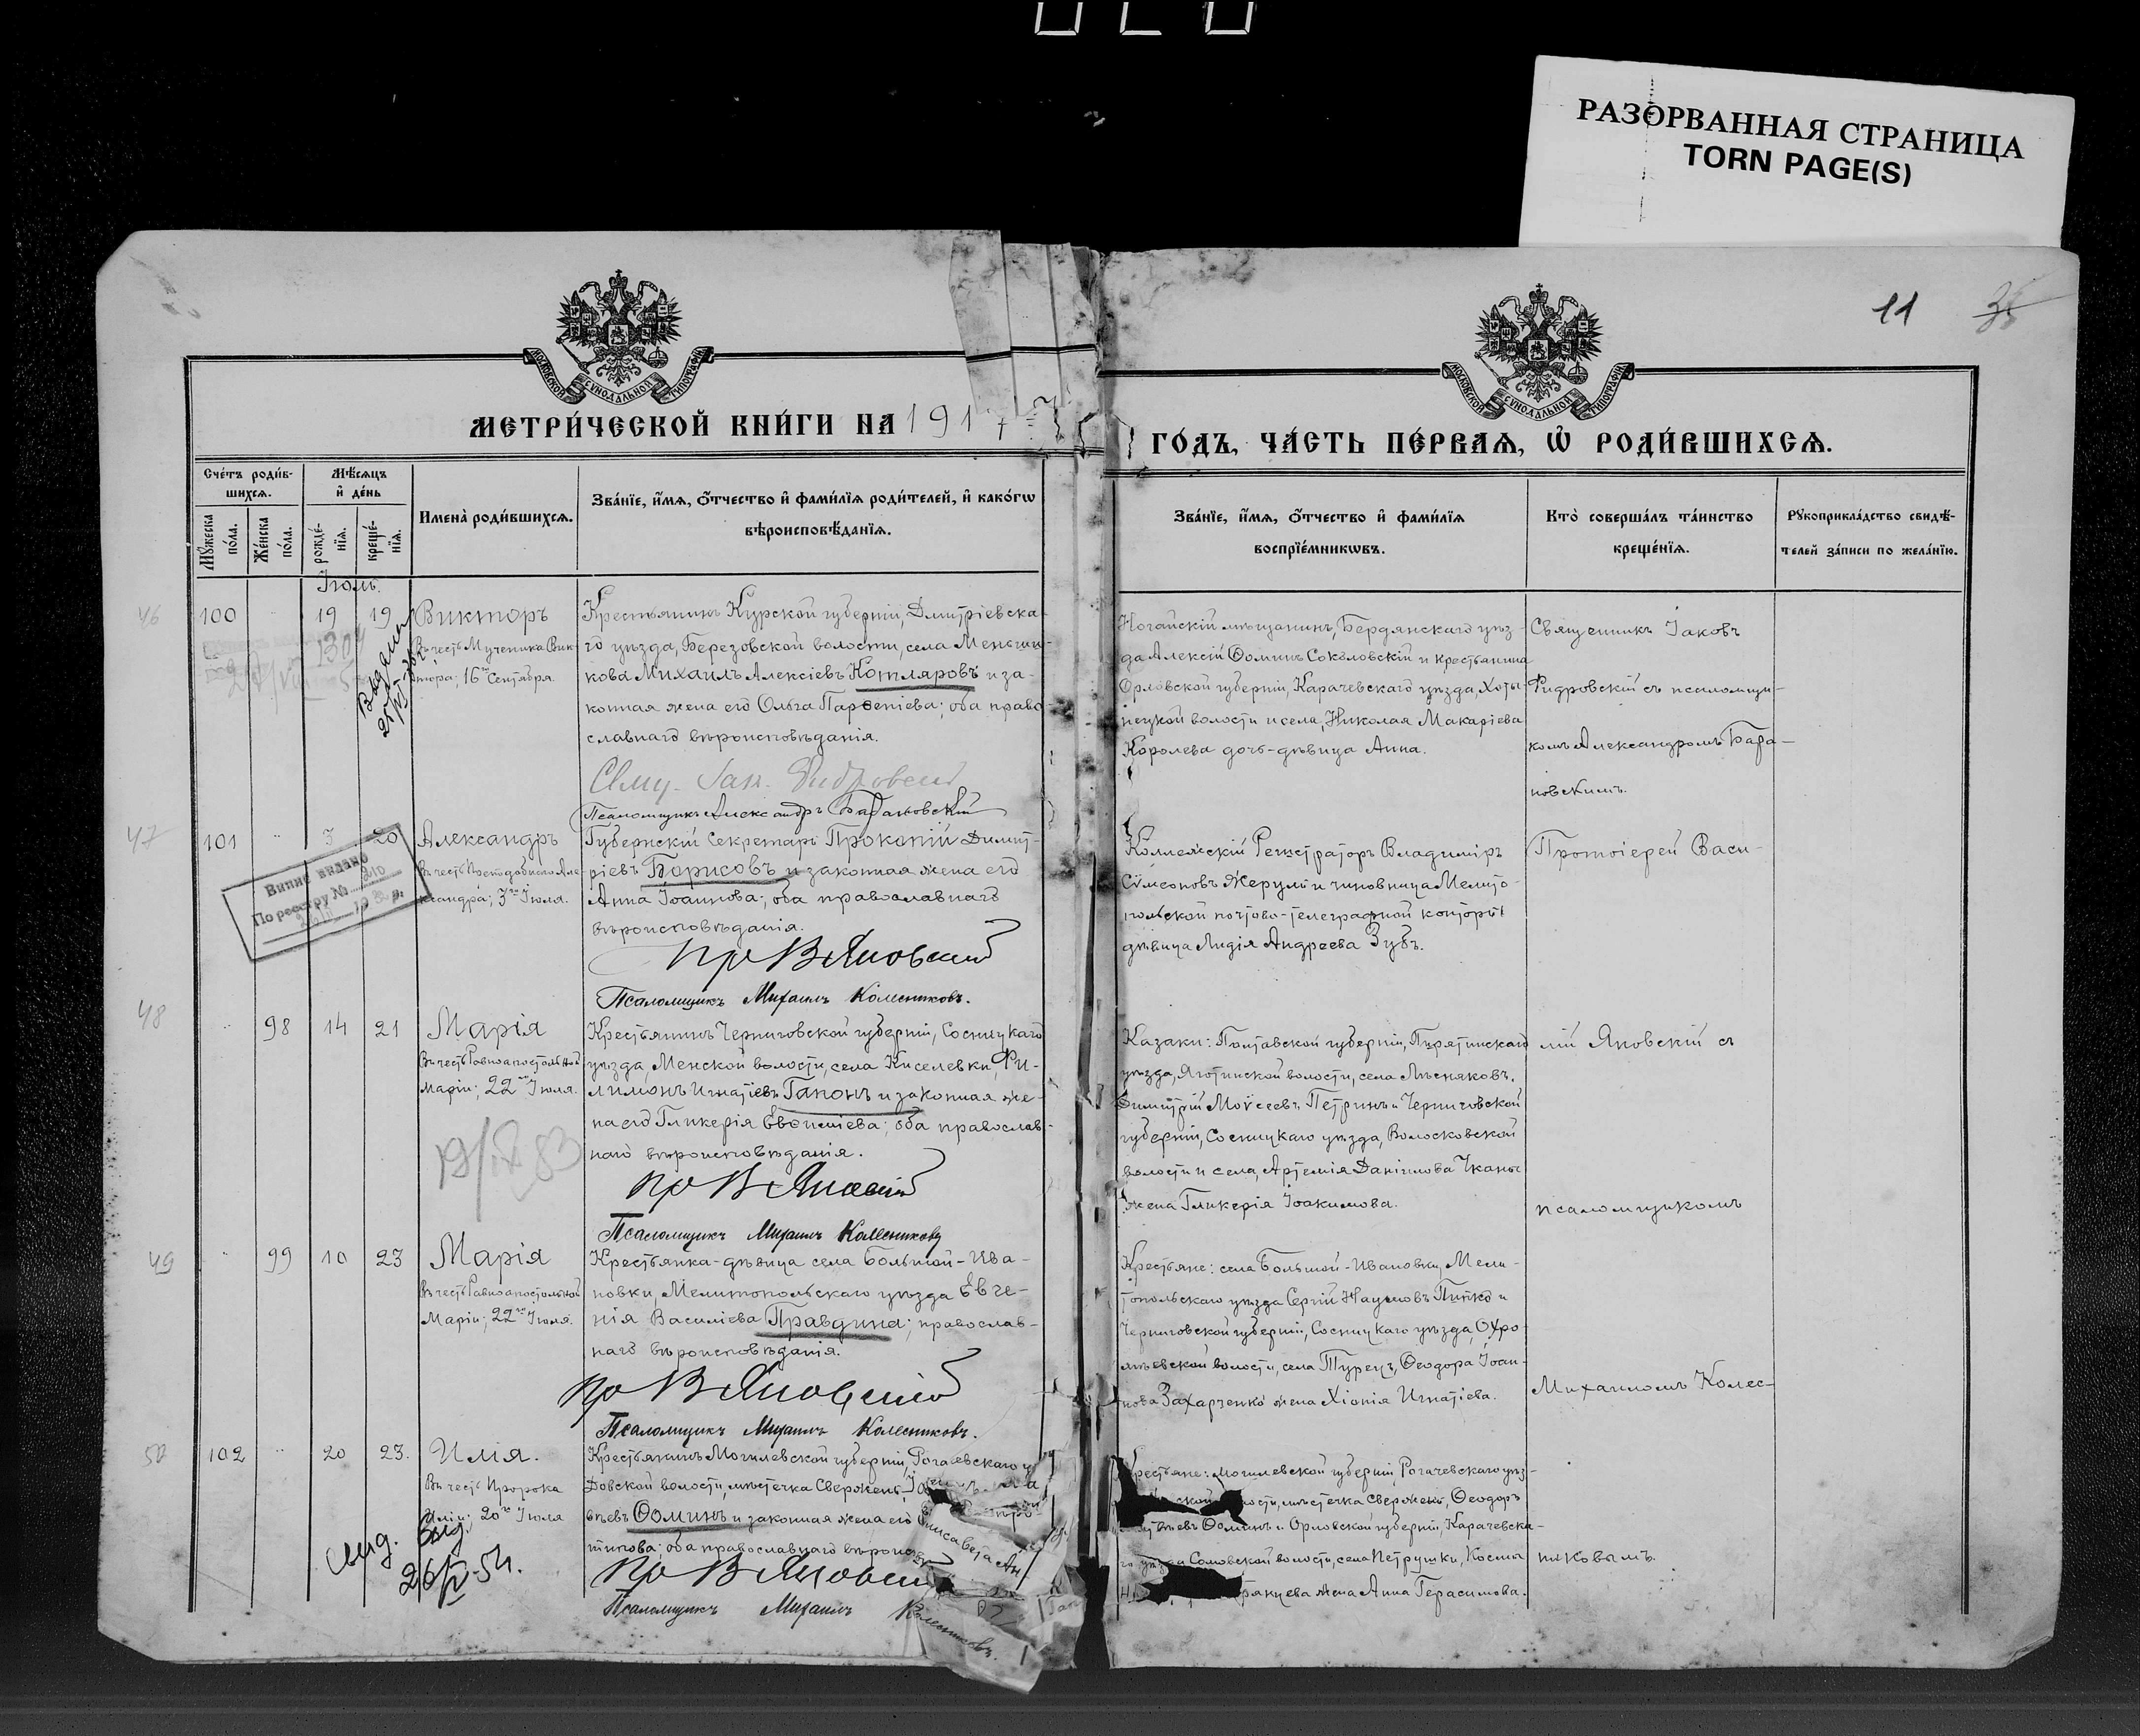 РАЗОРВАННАЯ СТРАНИЦА
TORN PAGE(S)
11
МОСКОВСКОЙ СѴНОДАЛЬНОЙ ТИПОГРАФІИ
МОСКОВСКОЙ СѴНОДАЛЬНОЙ ТИПОГРАФІИ
МЕТРИ́ЧЕСКОЙ КНИ́ГИ НА 1917
ГО́ДЪ, ЧА́СТЬ ПЕ́РВАѦ, Ѡ҆ РОДИ́ВШИХСѦ.
Сче́тъ роди́в-
шихсѧ.
Мѣ́сѧцъ
и҆ де́нь
Мꙋ́жеска
по́ла.
Же́нска
по́ла.
рожде́-
нїѧ.
креще́-
нїѧ.
Имена̀ роди́вшихсѧ.
Зва́нїе, и҆́мѧ, ѻ҆́тчество и҆ фами́лїѧ роди́телей, и҆ како́гѡ
вѣроисповѣ́данїѧ.
Зва́нїе, и҆́мѧ, ѻ҆́тчество и҆ фами́лїѧ
воспрїе́мникѡвъ.
Кто̀ соверша́лъ та́инство
креще́нїѧ.
Рꙋкоприкла́дство свидѣ́-
телей за́писи по жела́нїю.
Іюль.
46
100
19
19
Викторъ
Въ честь Мученика Вик-
тора; 16го Сентября.
Крестьянинъ Курской губерніи, Дмитріевска-
го уѣзда, Березовской волости, села Меньши-
кова Михаилъ Алексіевъ Котляровъ и за-
конная жена его Ольга Парѳеніева; оба право-
славнаго вѣроисповѣданія.
Псаломщикъ Александръ Барановскій
Ногайскій мѣщанинъ, Бердянскаго уѣз-
да Алексій Ѳоминъ Соколовскій и крестьянина
Орловской губерніи, Карачевскаго уѣзда, Хоты-
нецкой волости и села, Николая Макаріева
Королева дочь-дѣвица Анна.
Священникъ Іаковъ
Фидровскій съ псаломщи-
комъ Александромъ Бара-
новскимъ.
47
101
3
20
Александръ
Въ честь Преподобнаго Але-
ксандра; 3го Іюля.
Витяг видано
По реєстру №
Губернскій Секретарь Прокопій Димит-
ріевъ Борисовъ и законная жена его
Анна Іоаннова; оба православнаго
вѣроисповѣданія.
Пр В Яновскій
Псаломщикъ Михаилъ Колесниковъ.
Коллежскій Регистраторъ Владиміръ
Сѵмеоновъ Жеруль и чиновница Мелито-
польской почтово-телеграфной конторы
дѣвица Лидія Андреева Зубъ.
Протоіерей Васи-
48
98
14
21
Марія
Въ честь Равноапостольной
Маріи; 22го Іюля.
Крестьянинъ Черниговской губерніи, Сосницкаго
уѣзда, Менской волости, села Киселевки, Фи-
лимонъ Игнатіевъ Гапонъ и законная же-
на его Гликерія Евѳиміева; оба православ-
наго вѣроисповѣданія.
Пр В Яновскій
Псаломщикъ Михаилъ Колесниковъ
Казаки: Полтавской губерніи, Пирятинскаго
уѣзда, Яготинской волости, села Лѣсняковъ,
Димитрій Моѵсеевъ Петринъ и Черниговской
губерніи, Сосницкаго уѣзда, Волосковской
волости и села, Артемія Даніилова Чканы
жена Гликерія Іоакимова.
лій Яновскій съ
псаломщикомъ
49
99
10
23
Марія
Въ честь Равноапостольной
Маріи; 22го Іюля.
Крестьянка-дѣвица села Большой-Ива-
новки, Мелитопольскаго уѣзда Евге-
нія Василіева Правдина; православ-
наго вѣроисповѣданія.
Пр В Яновскій
Псаломщикъ Михаилъ Колесниковъ.
Крестьяне: села Большой-Ивановки, Мели-
топольскаго уѣзда Сергій Наумовъ Пипко и
Черниговской губерніи, Сосницкаго уѣзда, Охро-
мѣевской волости, села Турецъ, Ѳеодора Іоан-
нова Захарченко жена Хіонія Игнатіева.
Михаиломъ Колес-
50
102
20
23.
Илія.
Въ честь Пророка
Иліи; 20го Іюля
26/V-54.
Крестьянинъ Могилевской губерніи, Рогачевскаго у
довской волости, мѣстечка Свержень,
вѣевъ Ѳоминъ и законная жена его Елисавета Ан
типова; оба православнаго вѣроиспов
Пр В Яновскій
Псаломщикъ Михаилъ Колесниковъ.
Крестьяне: Могилевской губерніи, Рогачевскаго уѣз-
ской волости, мѣстечка Свержень, Ѳеодоръ
вѣевъ Ѳоминъ и Орловской губерніи, Карачевска-
го уѣзда Соловской волости, села Петрушки, Космы
жена Анна Герасимова.
никовымъ.